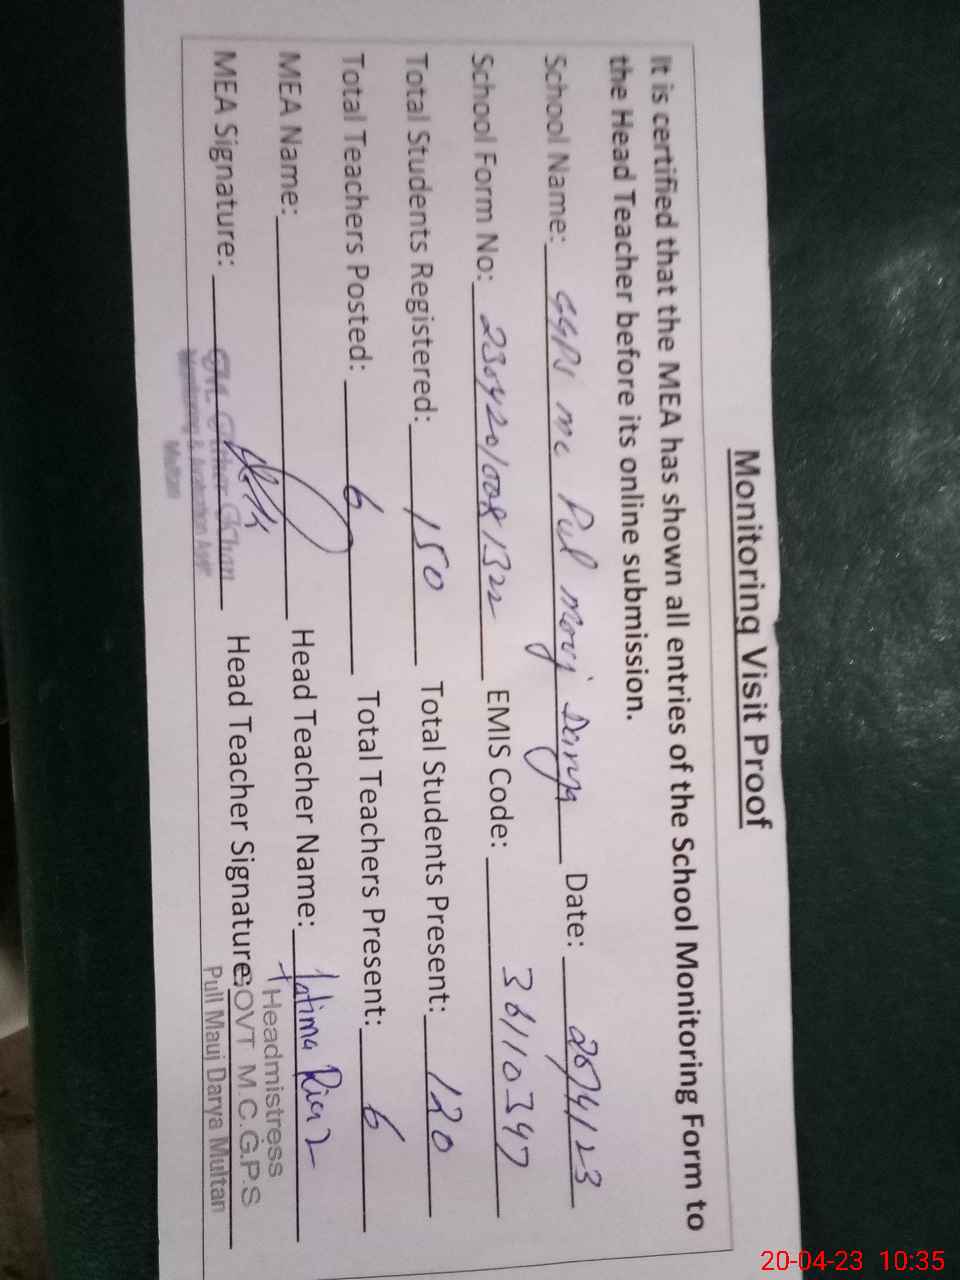 Monitoring Visit Proof
It is certified that the MEA has shown all entries of the School Monitoring Form to
the Head Teacher before its online submission.
School Name: GGPS mc Pul mouj Date: 20/4/23
School Form No: EMIS Code: 36110347
Total Students Registered: 150 Total Students Present: 120
Total Teachers Posted: 6 Total Teachers Present: 6
MEA Name: Head Teacher Name: Fatima Riaz
Headmistress
MEA Signature: Head Teacher Signature: GOVT M.C.G.P.S
Pull Mauj Darya Multan
Monitoring &
Multan
20-04-23 10:35